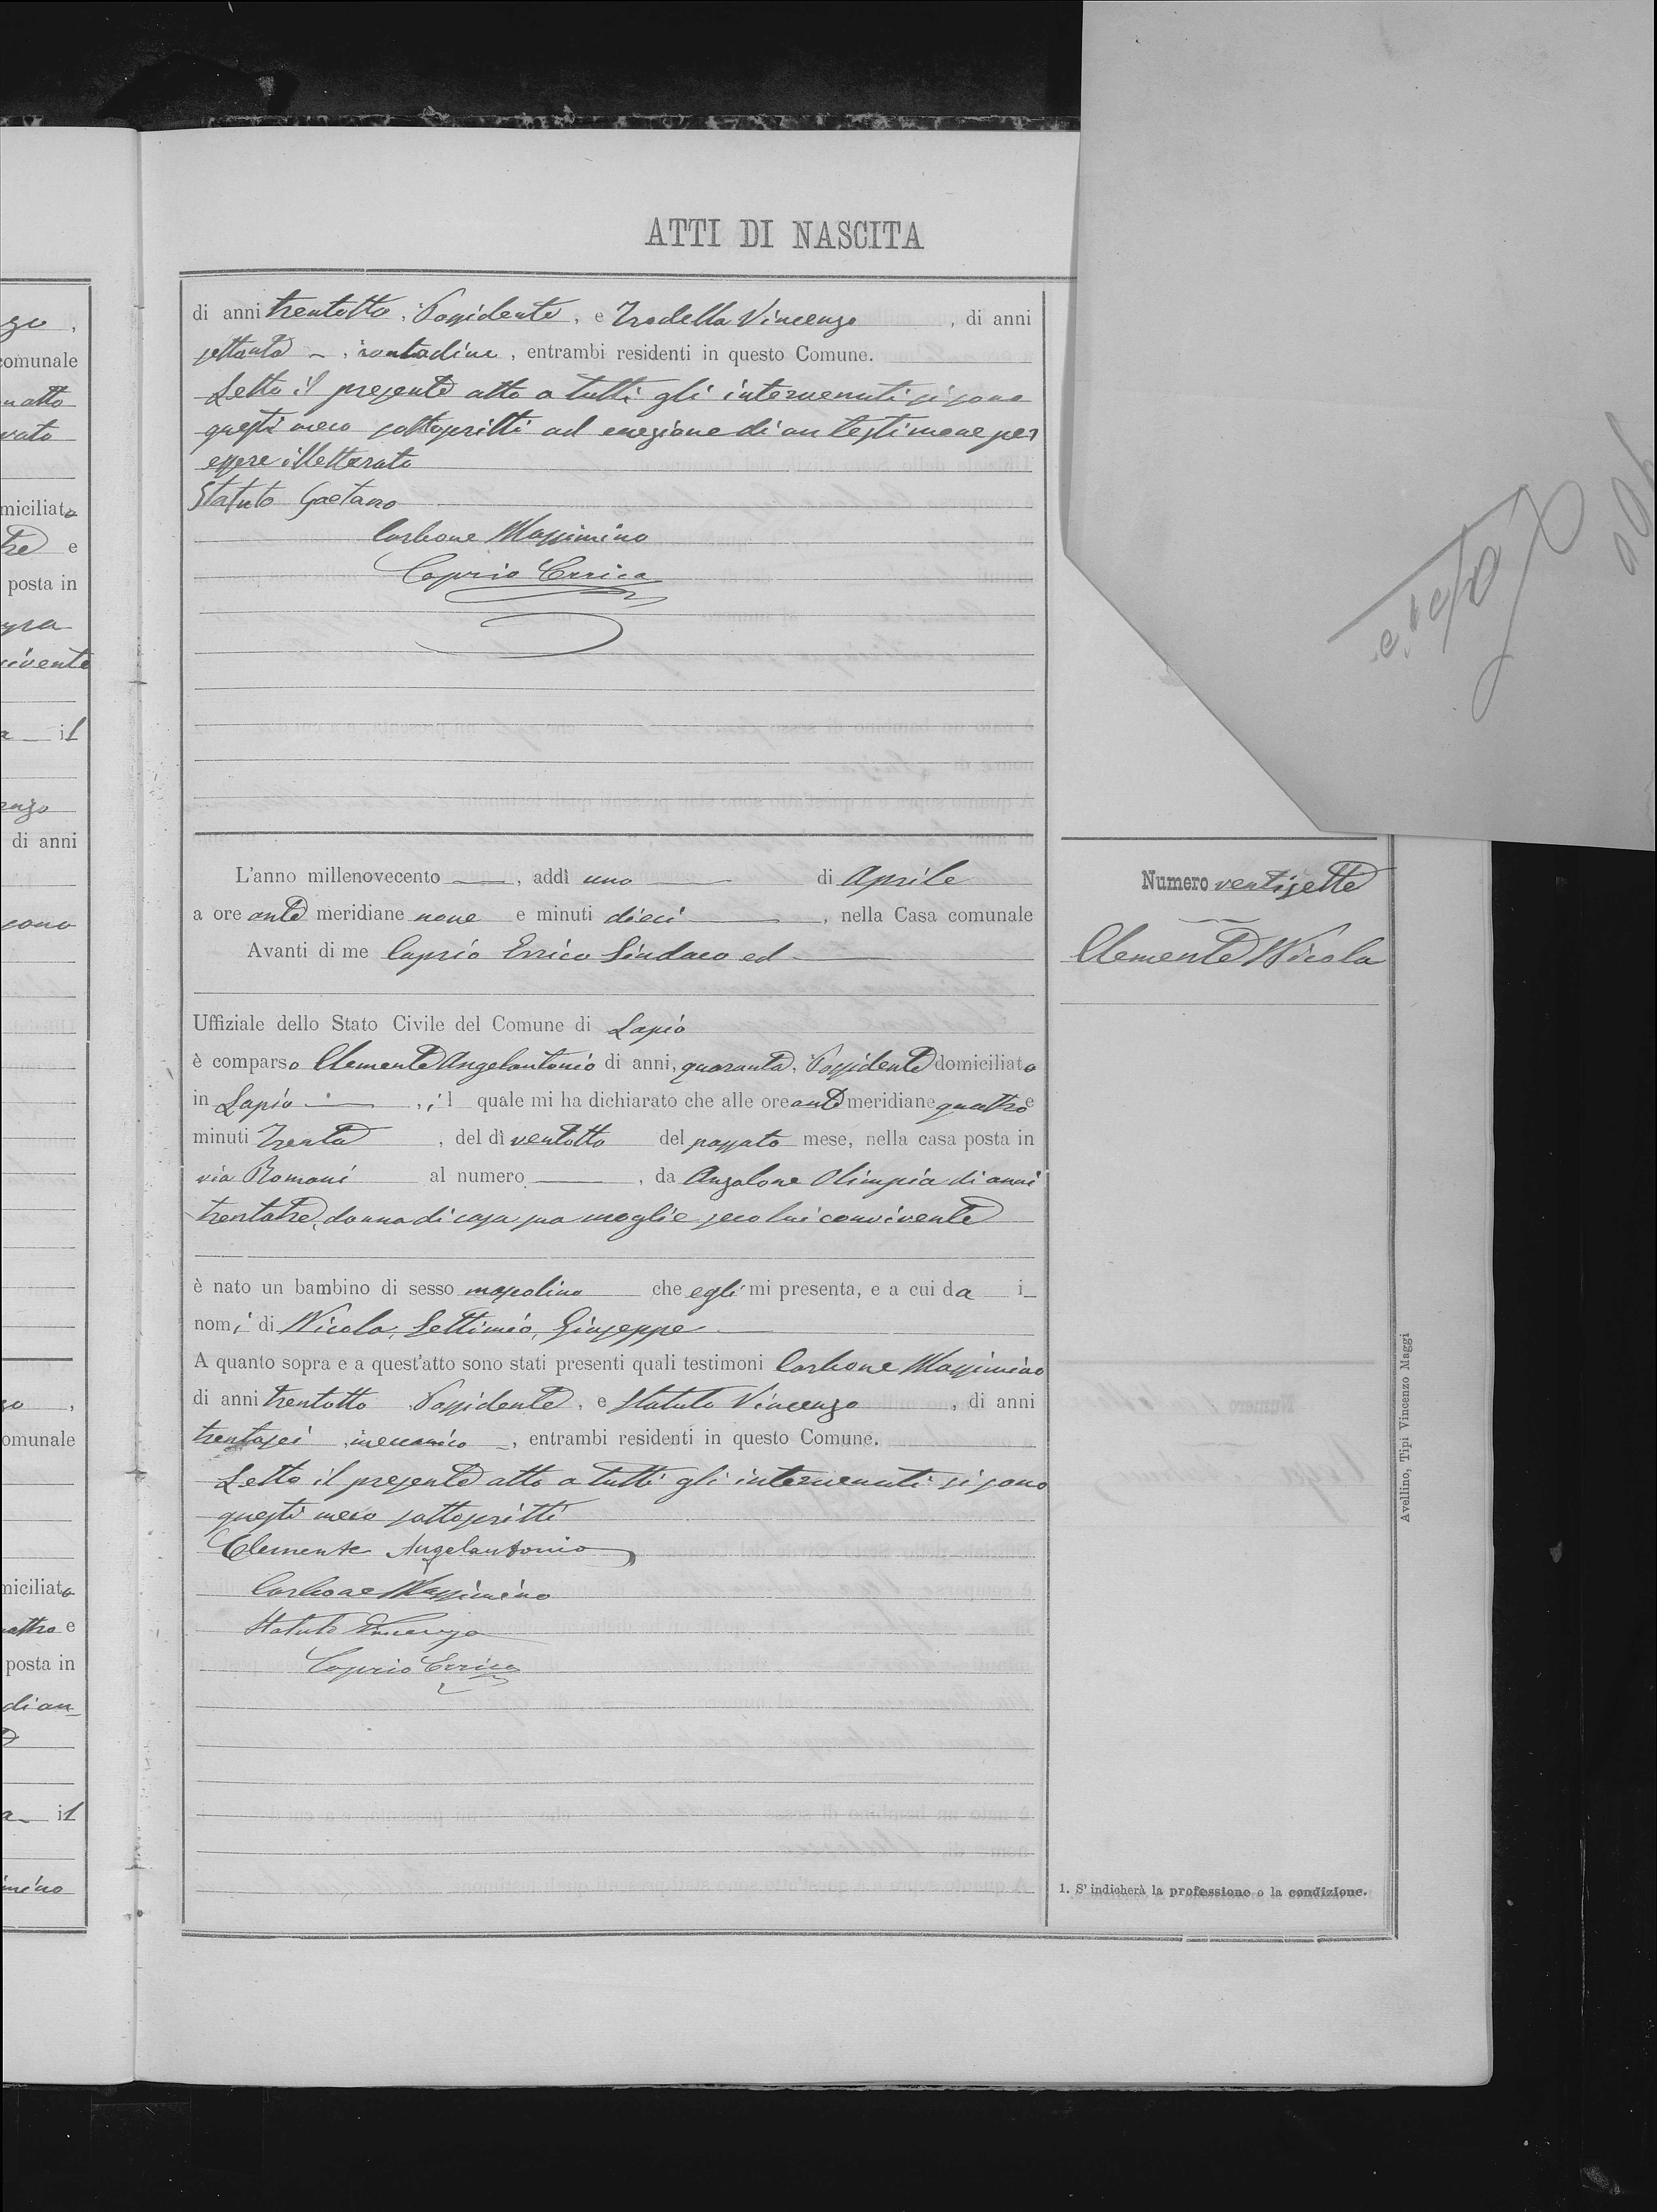 ATTI DI NASCITA
di anni trentotto, Possidente, e Trodella Vincenzo, di anni
settanta, contadino, entrambi residenti in questo Comune.
Letto il presente atto a tutti gli intervenuti si sono
questi meco sottoscritti ad eccezione di un testimone per
essere illetterato
Statuto Gaetano
Carbone Massimino
Caprio Errico
L'anno millenovecento, addì uno di Aprile
a ore ante meridiane nove e minuti dieci, nella Casa comunale
Avanti di me Caprio Errico Sindaco ed
Uffiziale dello Stato Civile del Comune di Lapio
è comparso Clemente Angelantonio di anni, quaranta, Possidente domiciliato
in Lapio, il quale mi ha dichiarato che alle ore ante meridiane quattro e
minuti trenta, del dì ventotto del passato mese, nella casa posta in
via Romani al numero, da Anzalone Olimpia di anni
trentatre, donna di casa sua moglie seco lui convivente
è nato un bambino di sesso mascolino che egli mi presenta, e a cui da i
nomi di Nicola, Settimio, Giuseppe
A quanto sopra e a quest'atto sono stati presenti quali testimoni Carbone Massimino
di anni trentotto, Possidente, e Statuto Vincenzo, di anni
trentasei, meccanico, entrambi residenti in questo Comune.
Letto il presente atto a tutti gli intervenuti si sono
questi meco sottoscritti
Clemente Angelantonio
Carbone Massimino
Statuto Vincenzo
Caprio Errico
Numero ventisette
Clemente Nicola
1. S'indicherà la professione o la condizione.
Avellino, Tipi Vincenzo Maggi
go,
comunale
natto
vato
miciliato
tre e
posta in
vivente
a il
enzo
di anni
sono
omunale
miciliato
attro e
posta in
di an
a il
imino